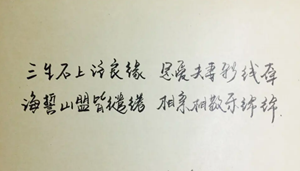 三生石上注良缘 恩爱夫妻彩线牵
海誓山盟皆缱绻 相亲相敬永绵绵